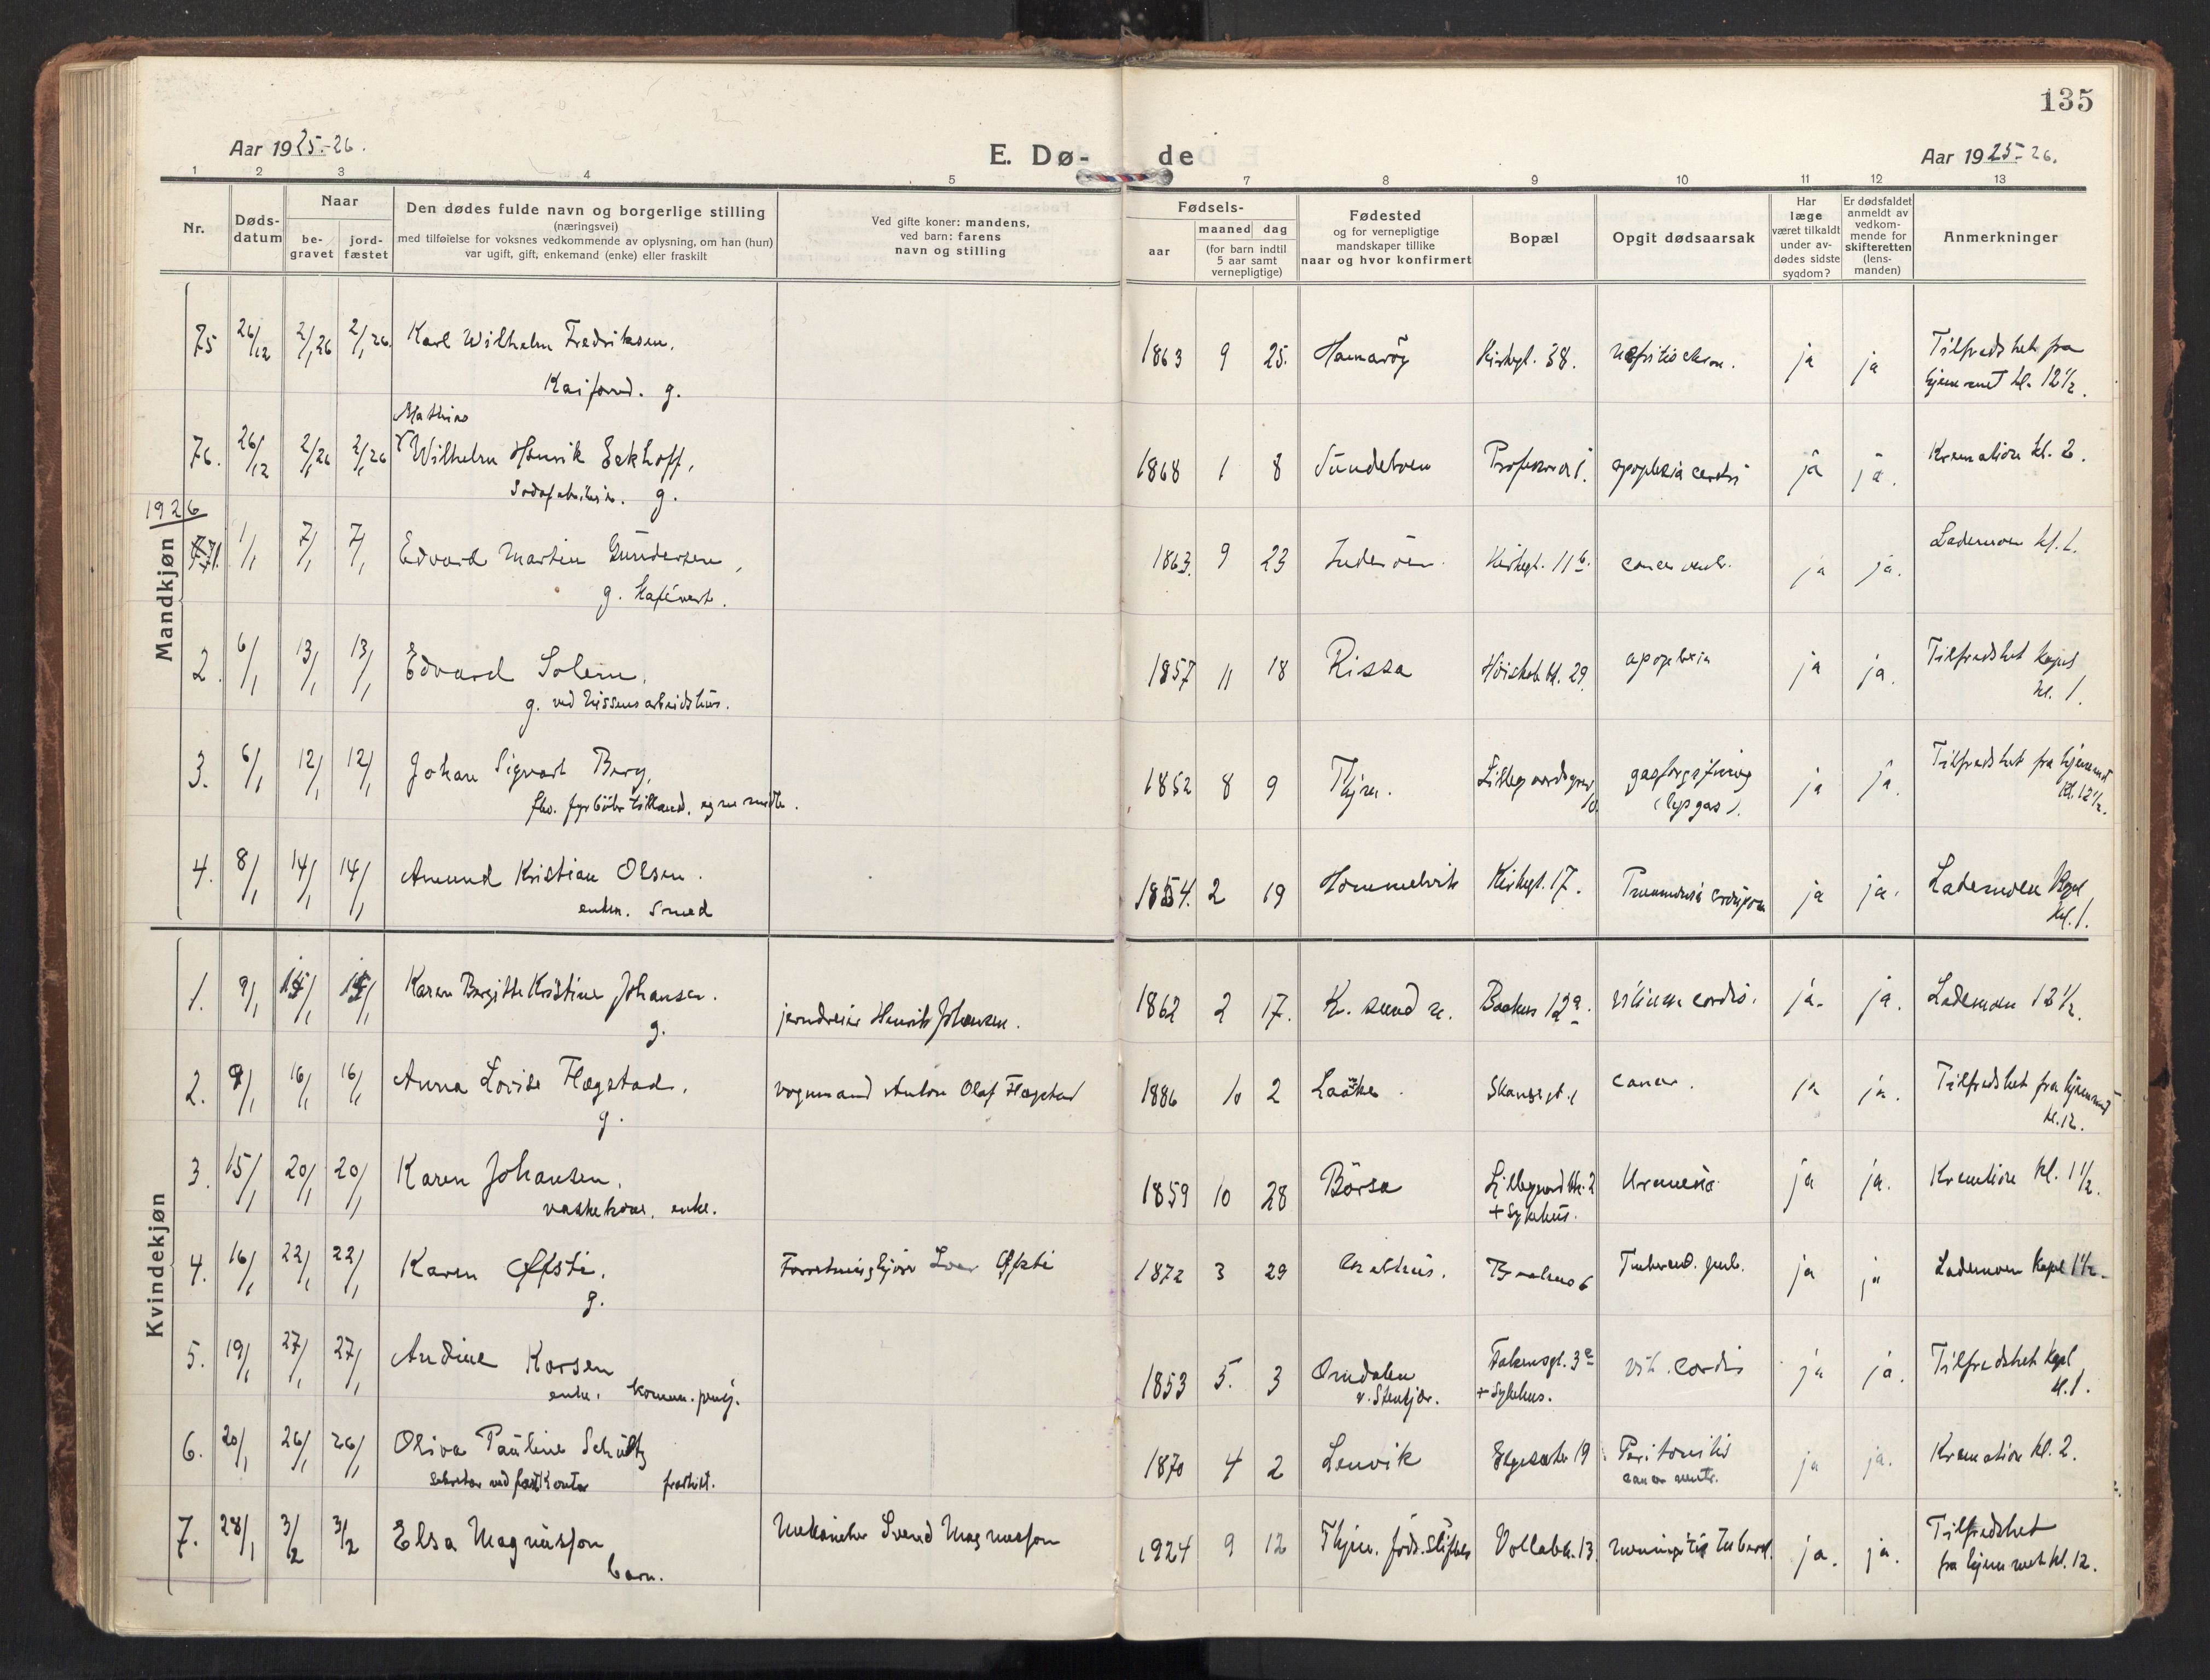 135
Aar 1925-26.
E. Dø-
de
Aar 1925-26.
1 2 3 4 5 7 8 9 10 11 12 13
Nr.
Døds-
datum
Naar
be-
gravet
jord-
fæstet
Den dødes fulde navn og borgerlige stilling
(næringsvei)
med tilføielse for voksnes vedkommende av oplysning, om han (hun)
var ugift, gift, enkemand (enke) eller fraskilt
Ved gifte koner: mandens,
ved barn: farens
navn og stilling
Fødsels-
aar
maaned dag
(for barn indtil
5 aar samt
vernepligtige)
Fødested
og for vernepligtige
mandskaper tillike
naar og hvor konfirmert
Bopæl
Opgit dødsaarsak
Har
læge
været tilkaldt
under av-
dødes sidste
sygdom?
Er dødsfaldet
anmeldt av
vedkom-
mende for
skifteretten
(lens-
manden)
Anmerkninger
Mandkjøn
75 26/12 2/1 26 2/1 26 Karl Wilhelm Fredriksen, 1863 9 25. Hamarøy Kirkegt. 38. nefritis chron. ja ja Tilfredshet fra
hjemmet kl. 12½.
g.
Mathias
76. 26/12 2/1 26 2/1 26 Wilhelm Henrik Eekhoff, 1868 1 8 apoplexia cerebri ja ja. Kremation kl. 2.
g.
1926
1. 1/1 7/1 7/1 Edvard Martin Gundersen, 1863. 9 23 Inderøen. Kirkegt. 11b. cancer ventr. ja ja. Lademoen kl. 1.
g. Kafévert.
2. 6/1 13/1 13/1 Edvard Solem, 1857 11 18 Rissa 29. apoplexia ja ja. Tilfredshet Kapel
kl. 1.
g. ved Nissens arbeidshus.
3. 6/1 12/1 12/1 Johan Sigvart Berg, 1852 8 9 Thjm. gasforgiftning
(lysgas). ja ja. Tilfredshet fra hjemmet
kl. 12½.
4. 8/1 14/1 14/1 Amund Kristian Olsen. 1854. 2 19 Hommelvik Kirkegt. 17. ja ja. Lademoen Kapel
kl. 1.
enkem. Smed
Kvindekjøn
1. 9/1 15/1 15/1 Karen Birgitte Kristine Johansen. 1862 2 17. K. sund n. Bakkens 12a. vitium cordis. ja. ja. Lademoen 12½.
g. jerndreier Henrik Johansen.
2. 9/1 16/1 16/1 Anna Lovise Flægstad, vognmand Anton Olaf Flægstad 1886 10 2 Skansegt. 1 cancer. ja ja. Tilfredshet fra hjemmet
kl. 12.
g.
3. 15/1 20/1 20/1 Karen Johansen, 1859 10 28 Börsa Lillegaardsbk. 2
+ sykehus. Uræmia ja ja. Kremation kl. 1½.
vaskekone. enke.
4. 16/1 22/1 22/1 Karen Øfsti, Forretningsfører Øfsti 1872 3 29 Tubercul. pulm. ja ja Lademoen Kapel 1½.
g.
5. 19/1 27/1 27/1 Andine Korsen 1853 5. 3 Ormdalen
v. Stenkjær. Falkensgt. 3a
+ Sykehus. vit. cordis ja ja. Tilfredshet Kapel
kl. 1.
enke. kommun. pensj.
6. 20/1 26/1 26/1 Oliva Pauline Schultz 1870 4 2 Lenvik 19 Peritonitis
cancer ventr. ja ja. Kremation kl. 2.
fraskilt.
7. 28/1 3/2 3/2 Elsa Magnusson Mekaniker Svend Magnusson 1924 9 12 Thjm. föds.stiftels Vollabk. 13. meningitis tubercl. ja. ja. Tilfredshet
fra hjemmet kl. 12.
barn.